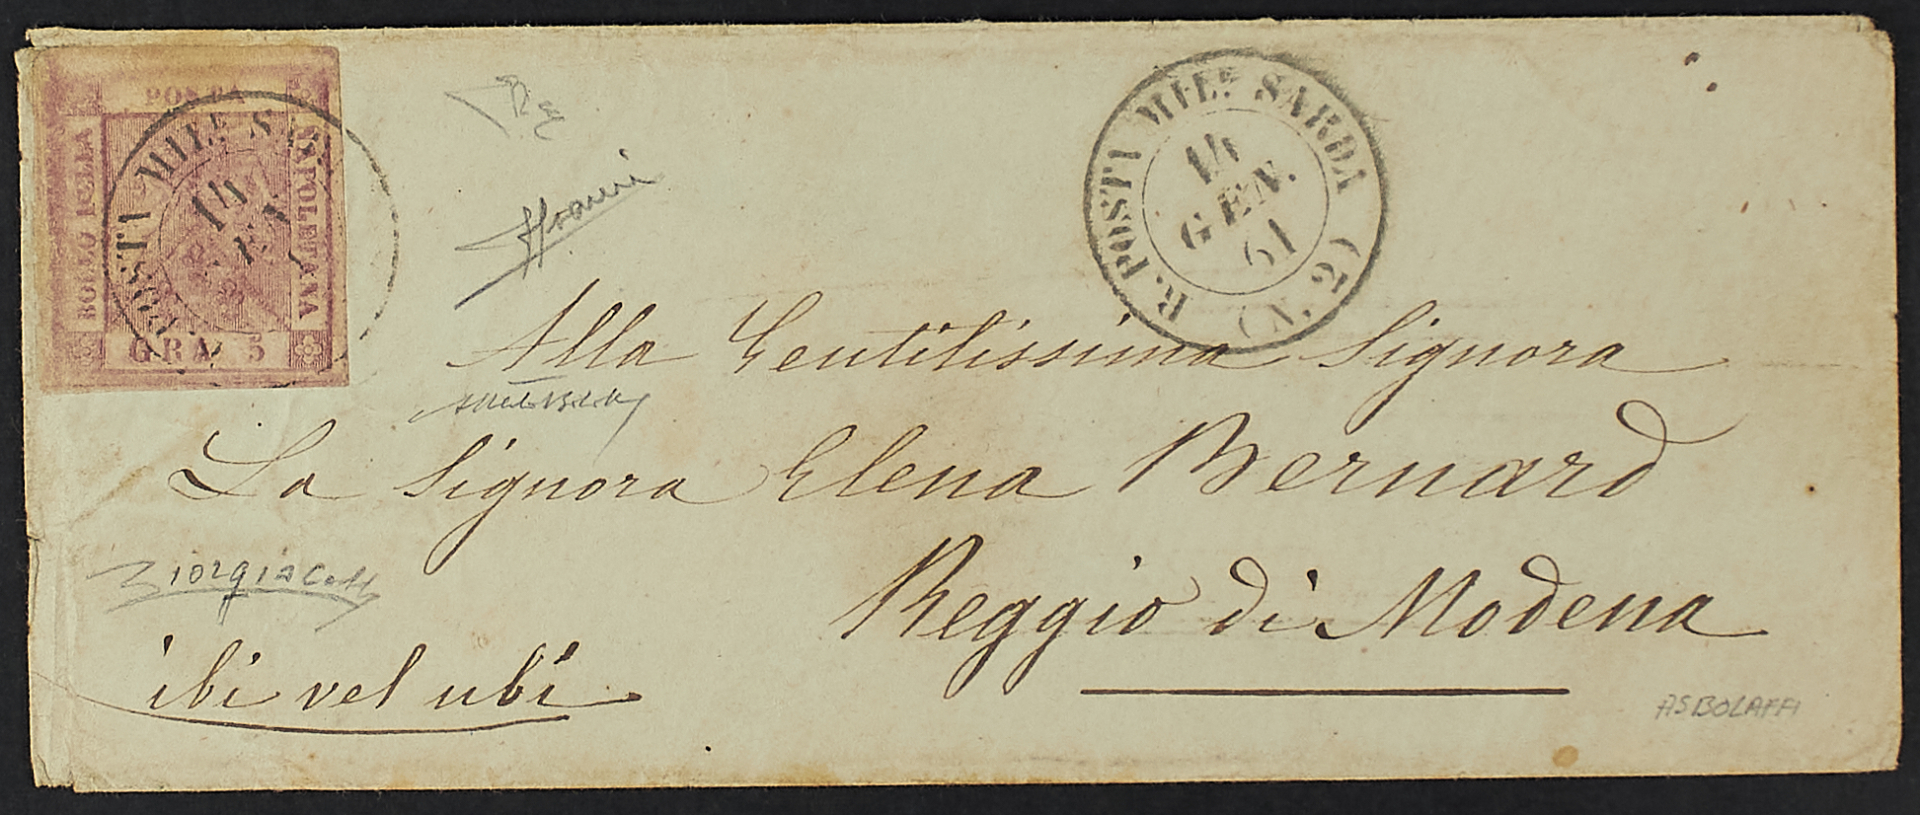 POSTA
BOLLO DELLA
NAPOLETANA
GRA 5
POSTA MILE S
14
GEN
R. POSTA MILE SARDA (N. 2)
14
GEN.
61
Alla Gentilissima Signora
La Signora Elena Bernard
Reggio di Modena
ibi vel ubi
ASBOLAFFI